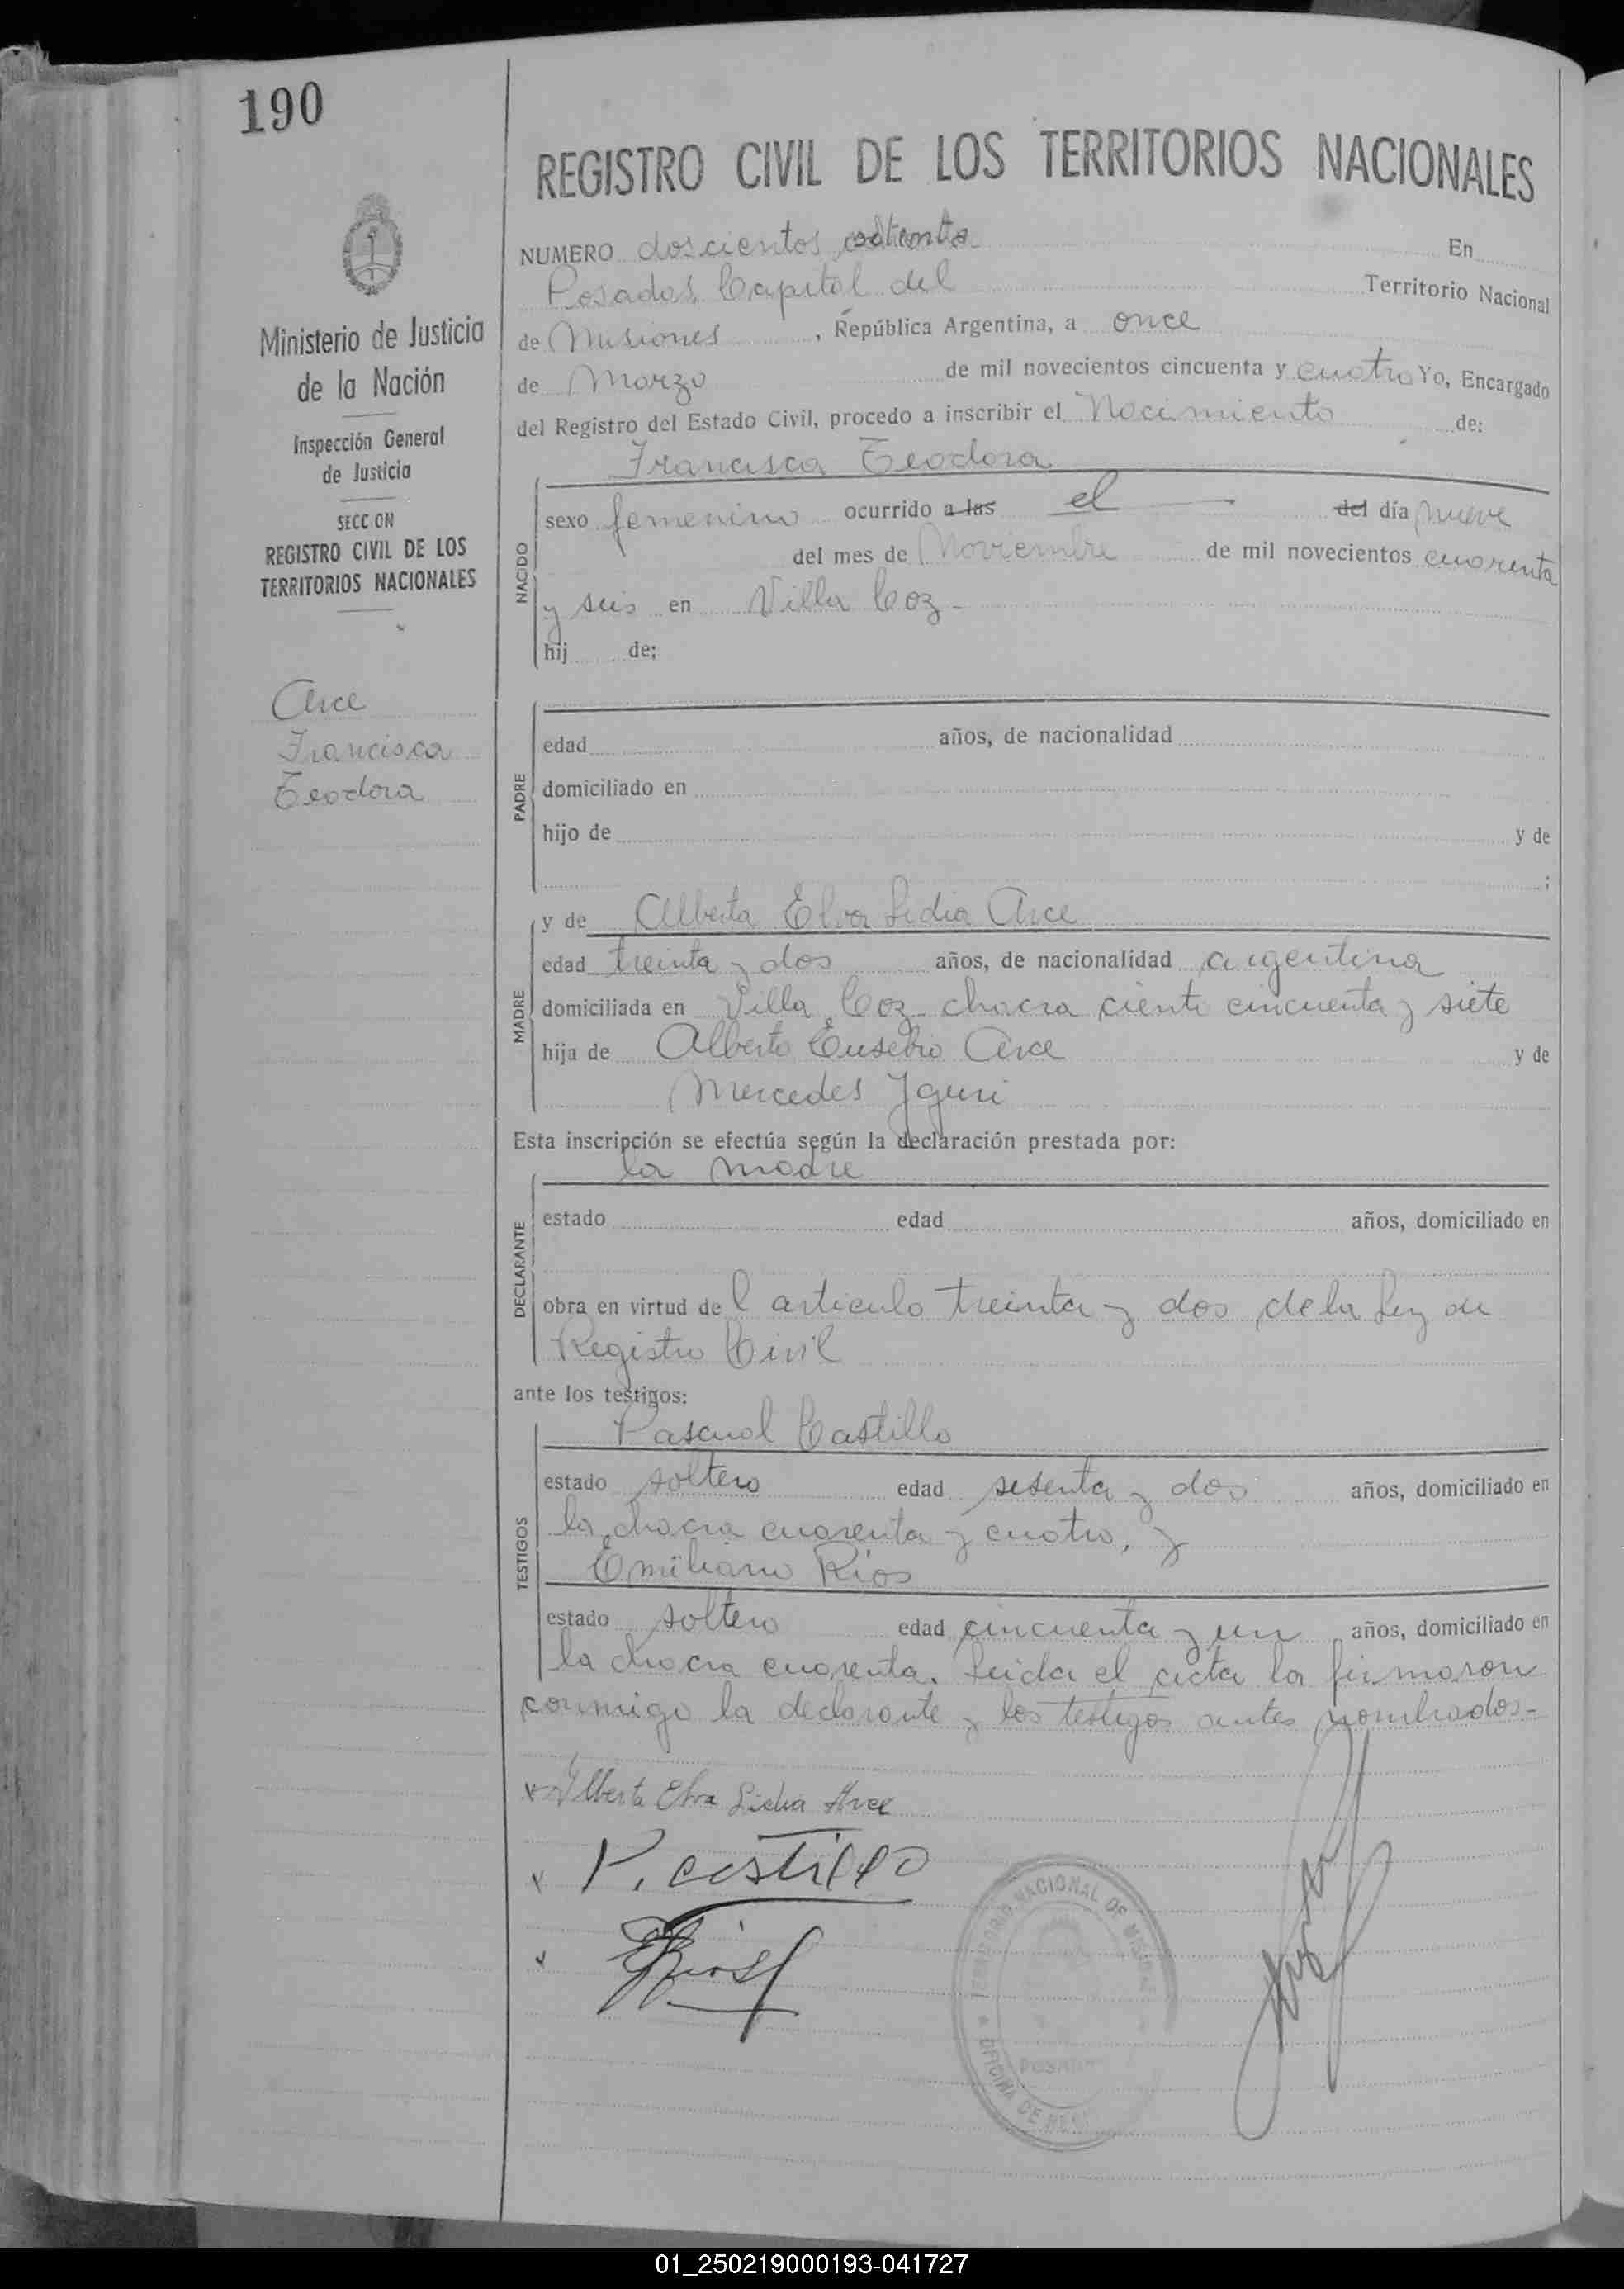 190
REGISTRO CIVIL DE LOS TERRITORIOS NACIONALES
NUMERO doscientos En
Posadas Capital del Territorio Nacional
de Misiones, República Argentina, a once
de Marzo de mil novecientos cincuenta y cuatro Yo, Encargado
del Registro del Estado Civil, procedo a inscribir el Nacimiento de:
Francisca Teodora
NACIDO
sexo femenino ocurrido a las el del día nueve
del mes de Noviembre de mil novecientos cuarenta
y seis en Villa Coz-
hij de:
PADRE
edad años, de nacionalidad
domiciliado en
hijo de y de
;
MADRE
y de Alberta Elva Lidia Arce
edad treinta y dos años, de nacionalidad argentina
domiciliada en Villa Coz chacra ciento cincuenta y siete
hija de Alberto Eusebio Arce y de
Mercedes Yguri
Esta inscripción se efectúa según la declaración prestada por:
la madre
DECLARANTE
estado edad años, domiciliado en
obra en virtud de l articulo treinta y dos de la Ley de
Registro Civil
ante los testigos:
TESTIGOS
Pascual Castillo
estado soltero edad sesenta y dos años, domiciliado en
la chacra cuarenta y cuatro, y
Emiliano Rios
estado soltero edad cincuenta y un años, domiciliado en
la chacra cuarenta. Leida el acta la firmaron
conmigo la declarante y los testigos antes nombrados-
Alberta Elva Lidia Arce
P. castillo
ERios
Ministerio de Justicia
de la Nación
Inspección General
de Justicia
SECCION
REGISTRO CIVIL DE LOS
TERRITORIOS NACIONALES
Arce
Francisca
Teodora
TERRITORIO NACIONAL DE MISIONES
OFICINA DE
POSADAS
01_250219000193-041727